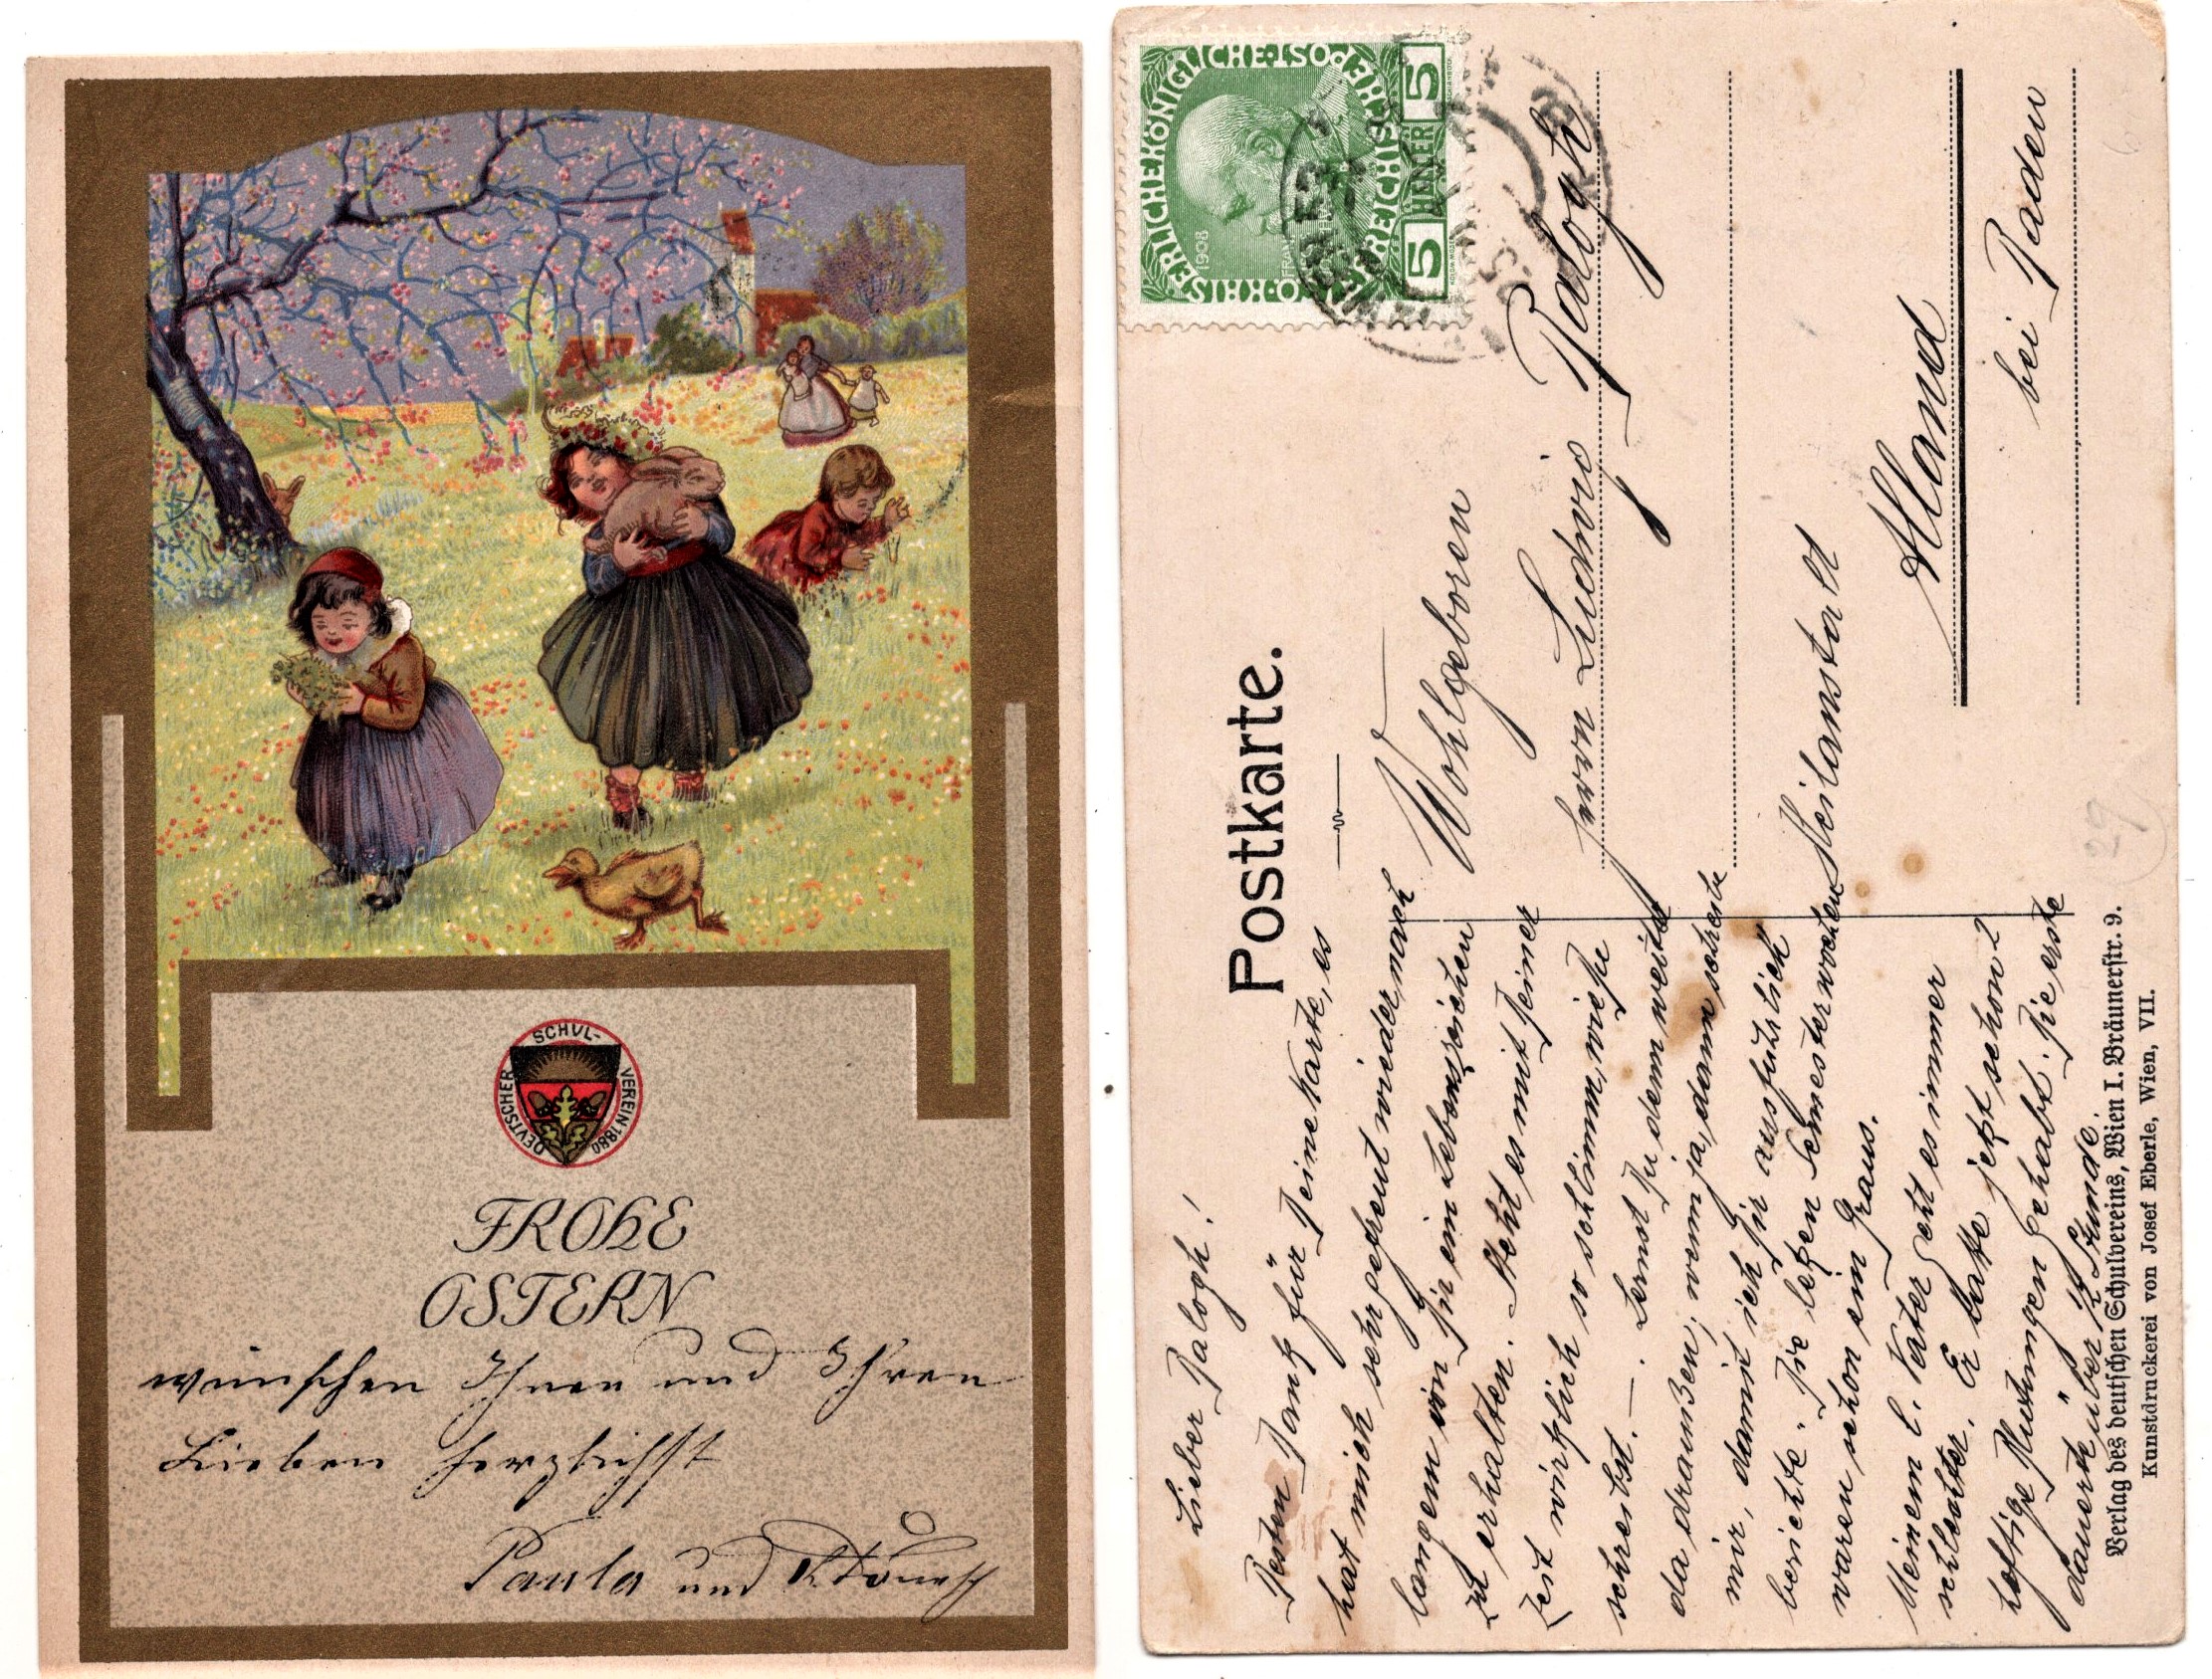 DEUTSCHER SCHUL-VEREIN 1880
FROHE
OSTERN
wünschen Ihnen und Ihren
Lieben herzlichst
Paula und
KAISERLICHE KÖNIGLICHE POST
ÖSTERREICHISCHE
1908
5 HELLER 5
Postkarte.
Wohlgeboren
Herrn Ludwig Balogh
Heilanstalt
Alland
bei Baden
Lieber Balogh!
Besten Dank für Deine Karte, es
hat mich sehr gefreut wieder nach
langem von Dir ein Lebenszeichen
zu erhalten. Steht es mit Deiner
Zeit wirklich so schlimm, wie Du
schreibst. — Lernst Du denn weiter
da draußen; wenn ja, dann schreibe
mir, damit ich Dir ausführlich
berichte. Die letzten Semesterwochen
waren schon ein Graus.
Meinem l. Vater geht es immer
schlechter. Er hatte jetzt schon 2
heftige Blutungen gehabt. Die erste
dauerte über ½ Stunde.
Verlag des deutschen Schulvereins, Wien I. Bräunerstr. 9.
Kunstdruckerei von Josef Eberle, Wien, VII.
29